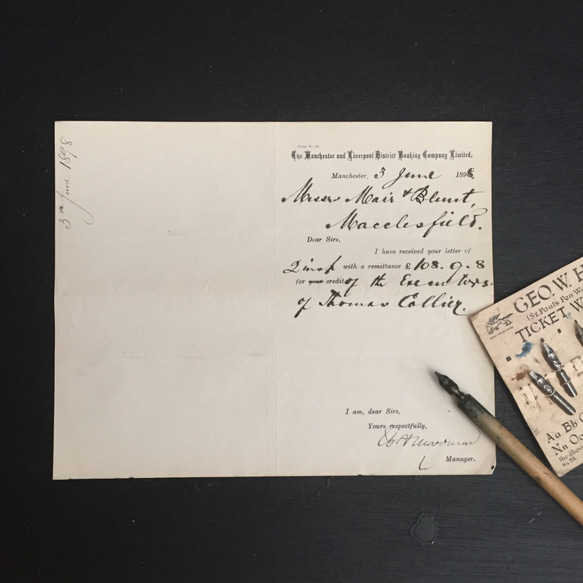 3rd June 1898
The Manchester and Liverpool District Banking Company Limited,
Manchester, 3 June 1898
Messrs Mair & Blunt,
Macclesfield.
Dear Sirs,
I have received your letter of
2 inst with a remittance £108.9.8
for your credit of the Executors
of Thomas Collier.
I am, dear Sirs,
Yours respectfully,
Manager.
GEO. W. H
(St. Paul's Pen W
TICKET W
Aa Bb C
Nn Oo